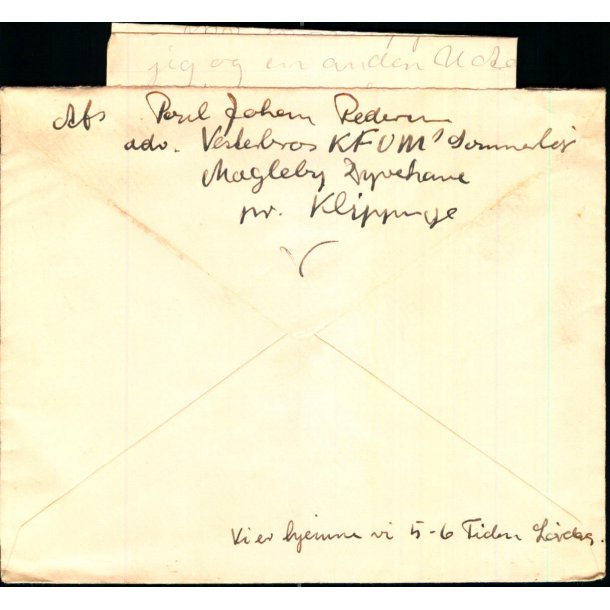 jeg og en anden
Afs Poul Johan Pedersen
adr. Vesterbros KFUM's Sommerlejr
Magleby Dyrehave
pr. Klippinge
Vi er hjemme vi 5-6 Tiden Lørdag.